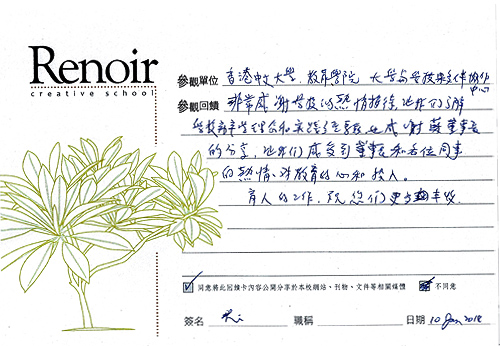 Renoir
creative school
參觀單位 香港中文大學.教育學院 大學與學校夥伴協作
中心
參觀回饋 非常感謝學校的熱情接待,让我们了解
学校办学的理念和实践经验,也感谢 董事長
的分享,让我们感受到董事長和各位同事
的熱情、对教育的心和投入。
育人的工作,祝您们更加丰收.
同意將此回饋卡內容公開分享於本校網站、刊物、文件等相關媒體 不同意
簽名 職稱 日期 10 Jan 2018